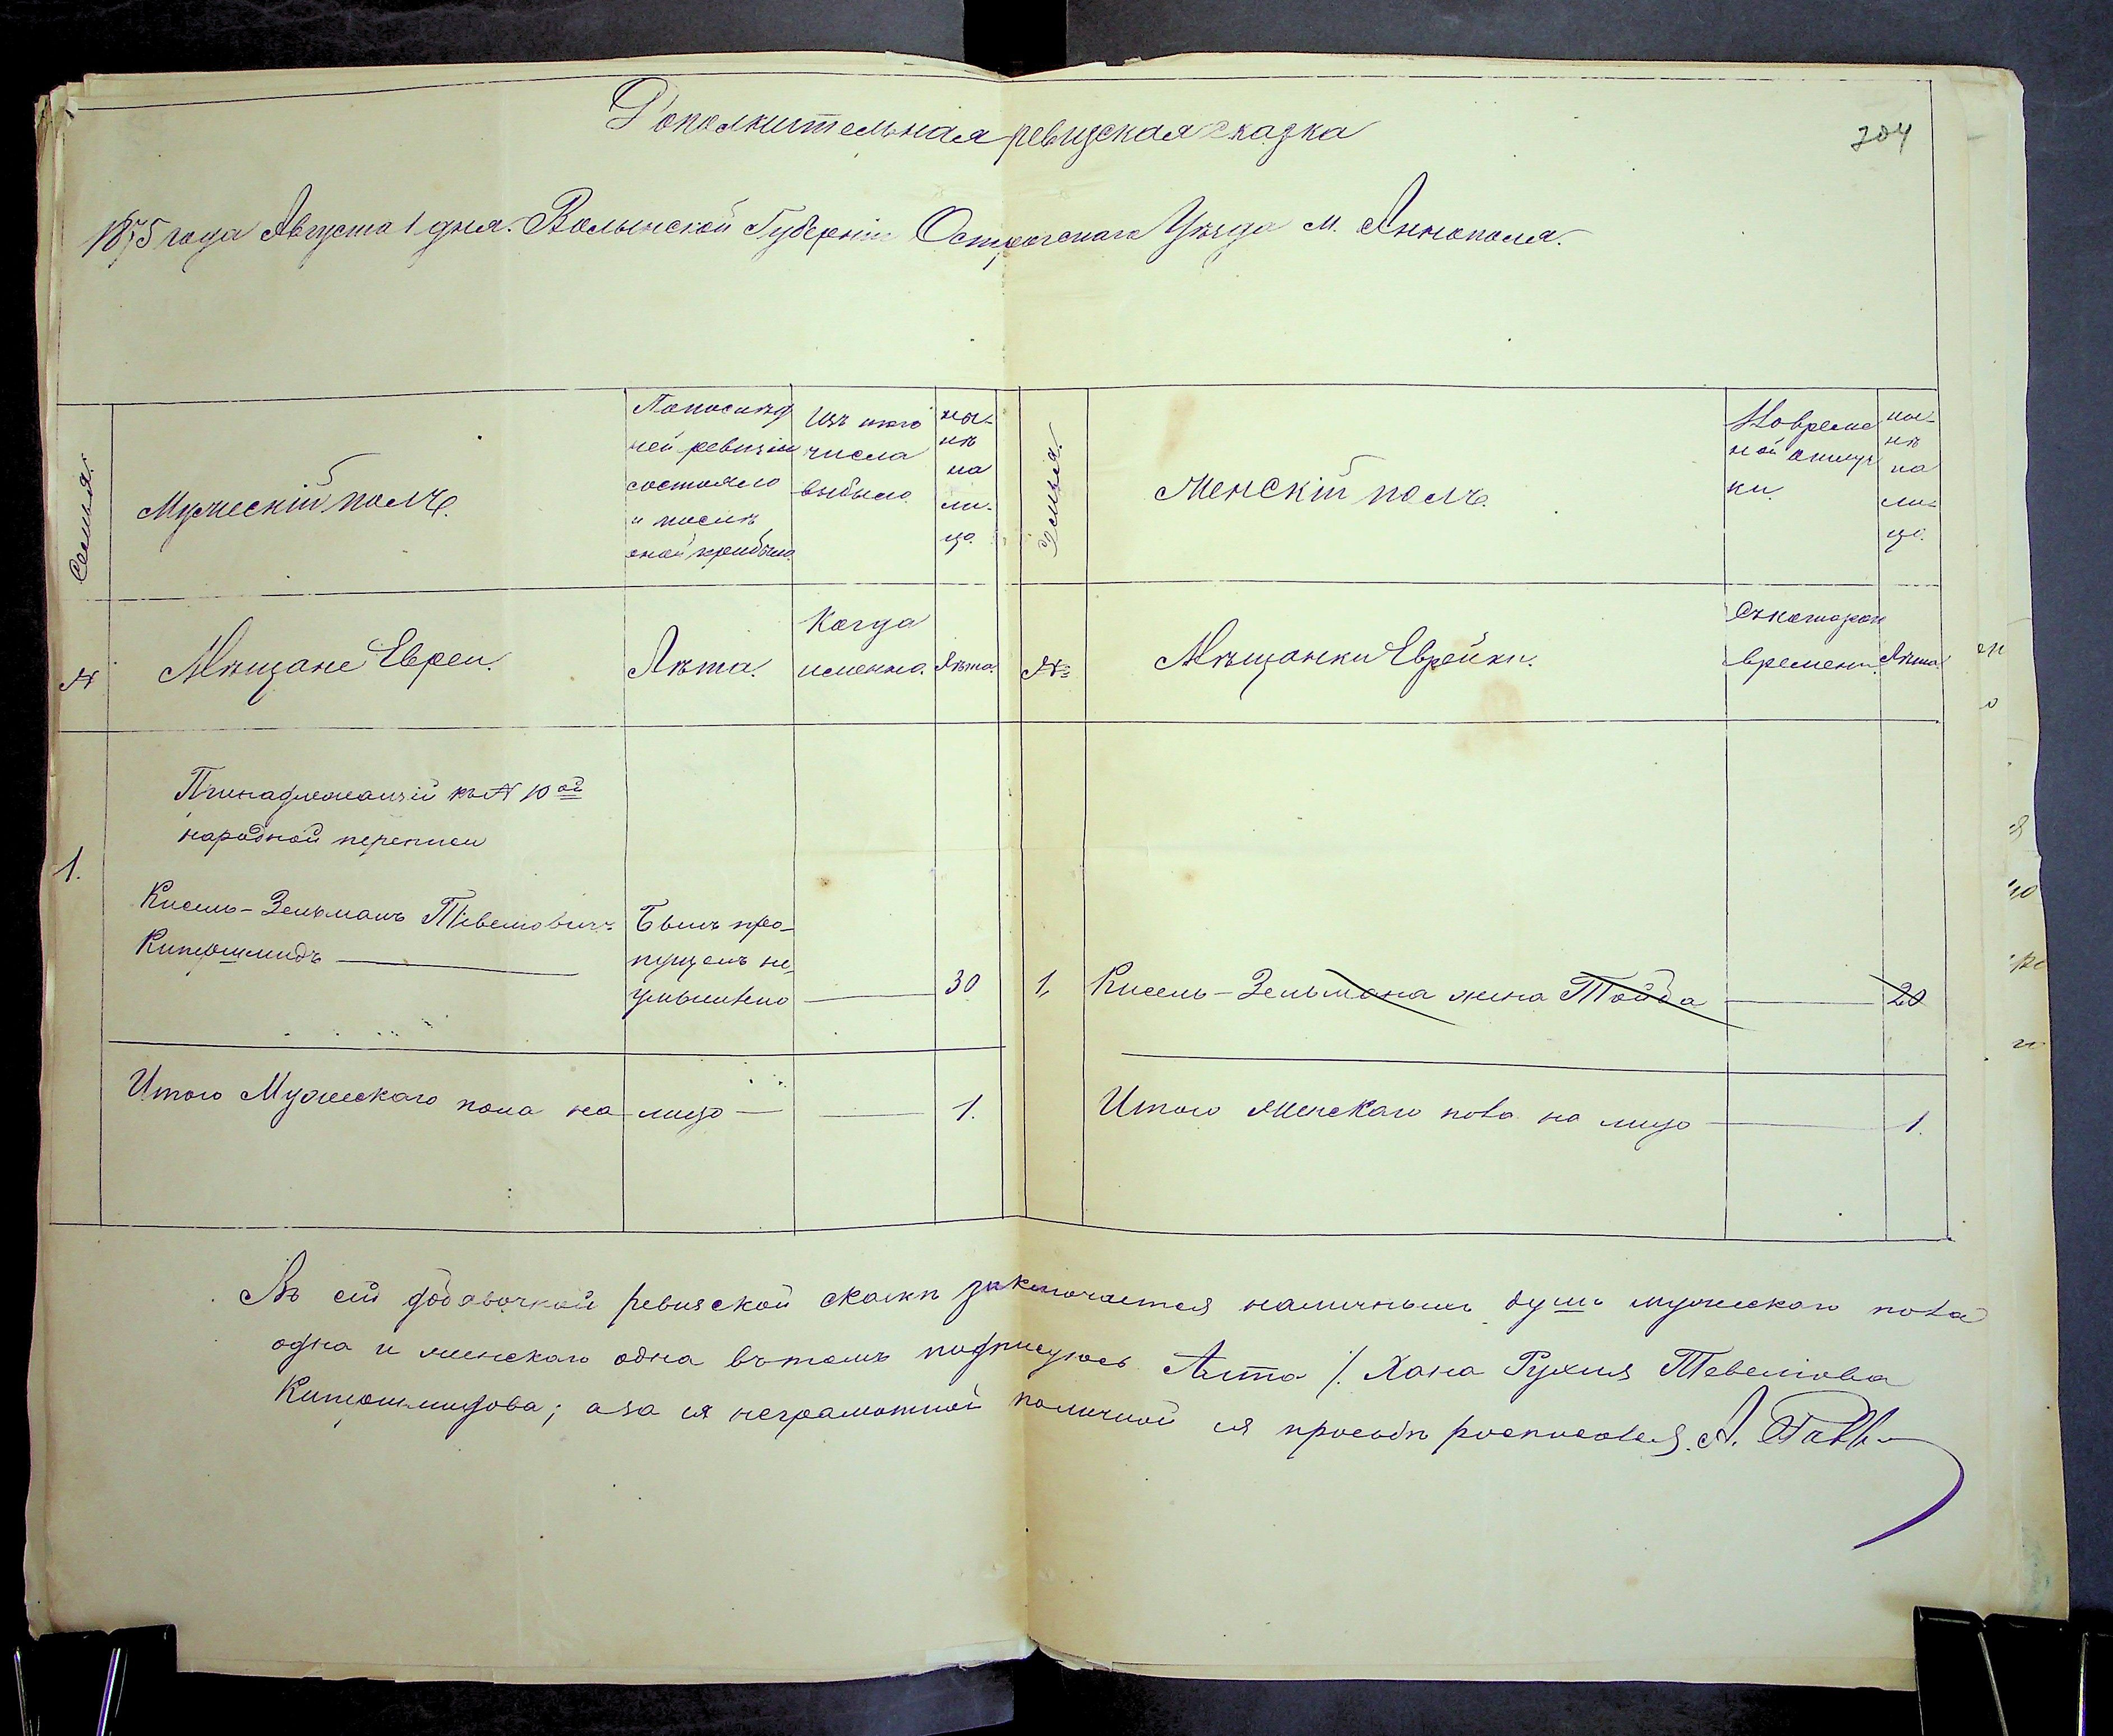 Дополнительная ревизская сказка
204
1875 года Августа 1 дня. Волынской Губерніи Острогскаго Уѣзда м. Аннополя.
Семья.
Мужескій полъ.
Попослѣд
ней ревизіи
состояло
и послѣ
оной прибыло.
Изъ того
числа
выбыло
ны-
нѣ
на
ли-
цо.
Семья.
Женскій полъ.
Вовреме
ной отлуч
ки.
ны-
нѣ
на
ли-
цо.
№
Мѣщане Евреи.
Лѣта.
Когда
именно.
Лѣта.
№
Мѣщанки Еврейки.
Съкотораго
времени.
Лѣта
Принадлежащій къ № 10ой
народной переписи
1.
Кисель-Зельманъ Тевелювичъ
Былъ про-
пущенъ не
умышлено
30
1,
Кисель-Зельмана жена Тойба
20
Итого Мужескаго пола на лицо
1.
Итого женскаго пола на лицо
1.
Въ сій добавочной ревизской сказкѣ заключается наличныхъ душъ мужескаго пола
одна и женскаго одна вътомъ подписуюсь Хана Рухля Тевелюва
аза ея неграмотной поличной ея просьбѣ росписовался. А.